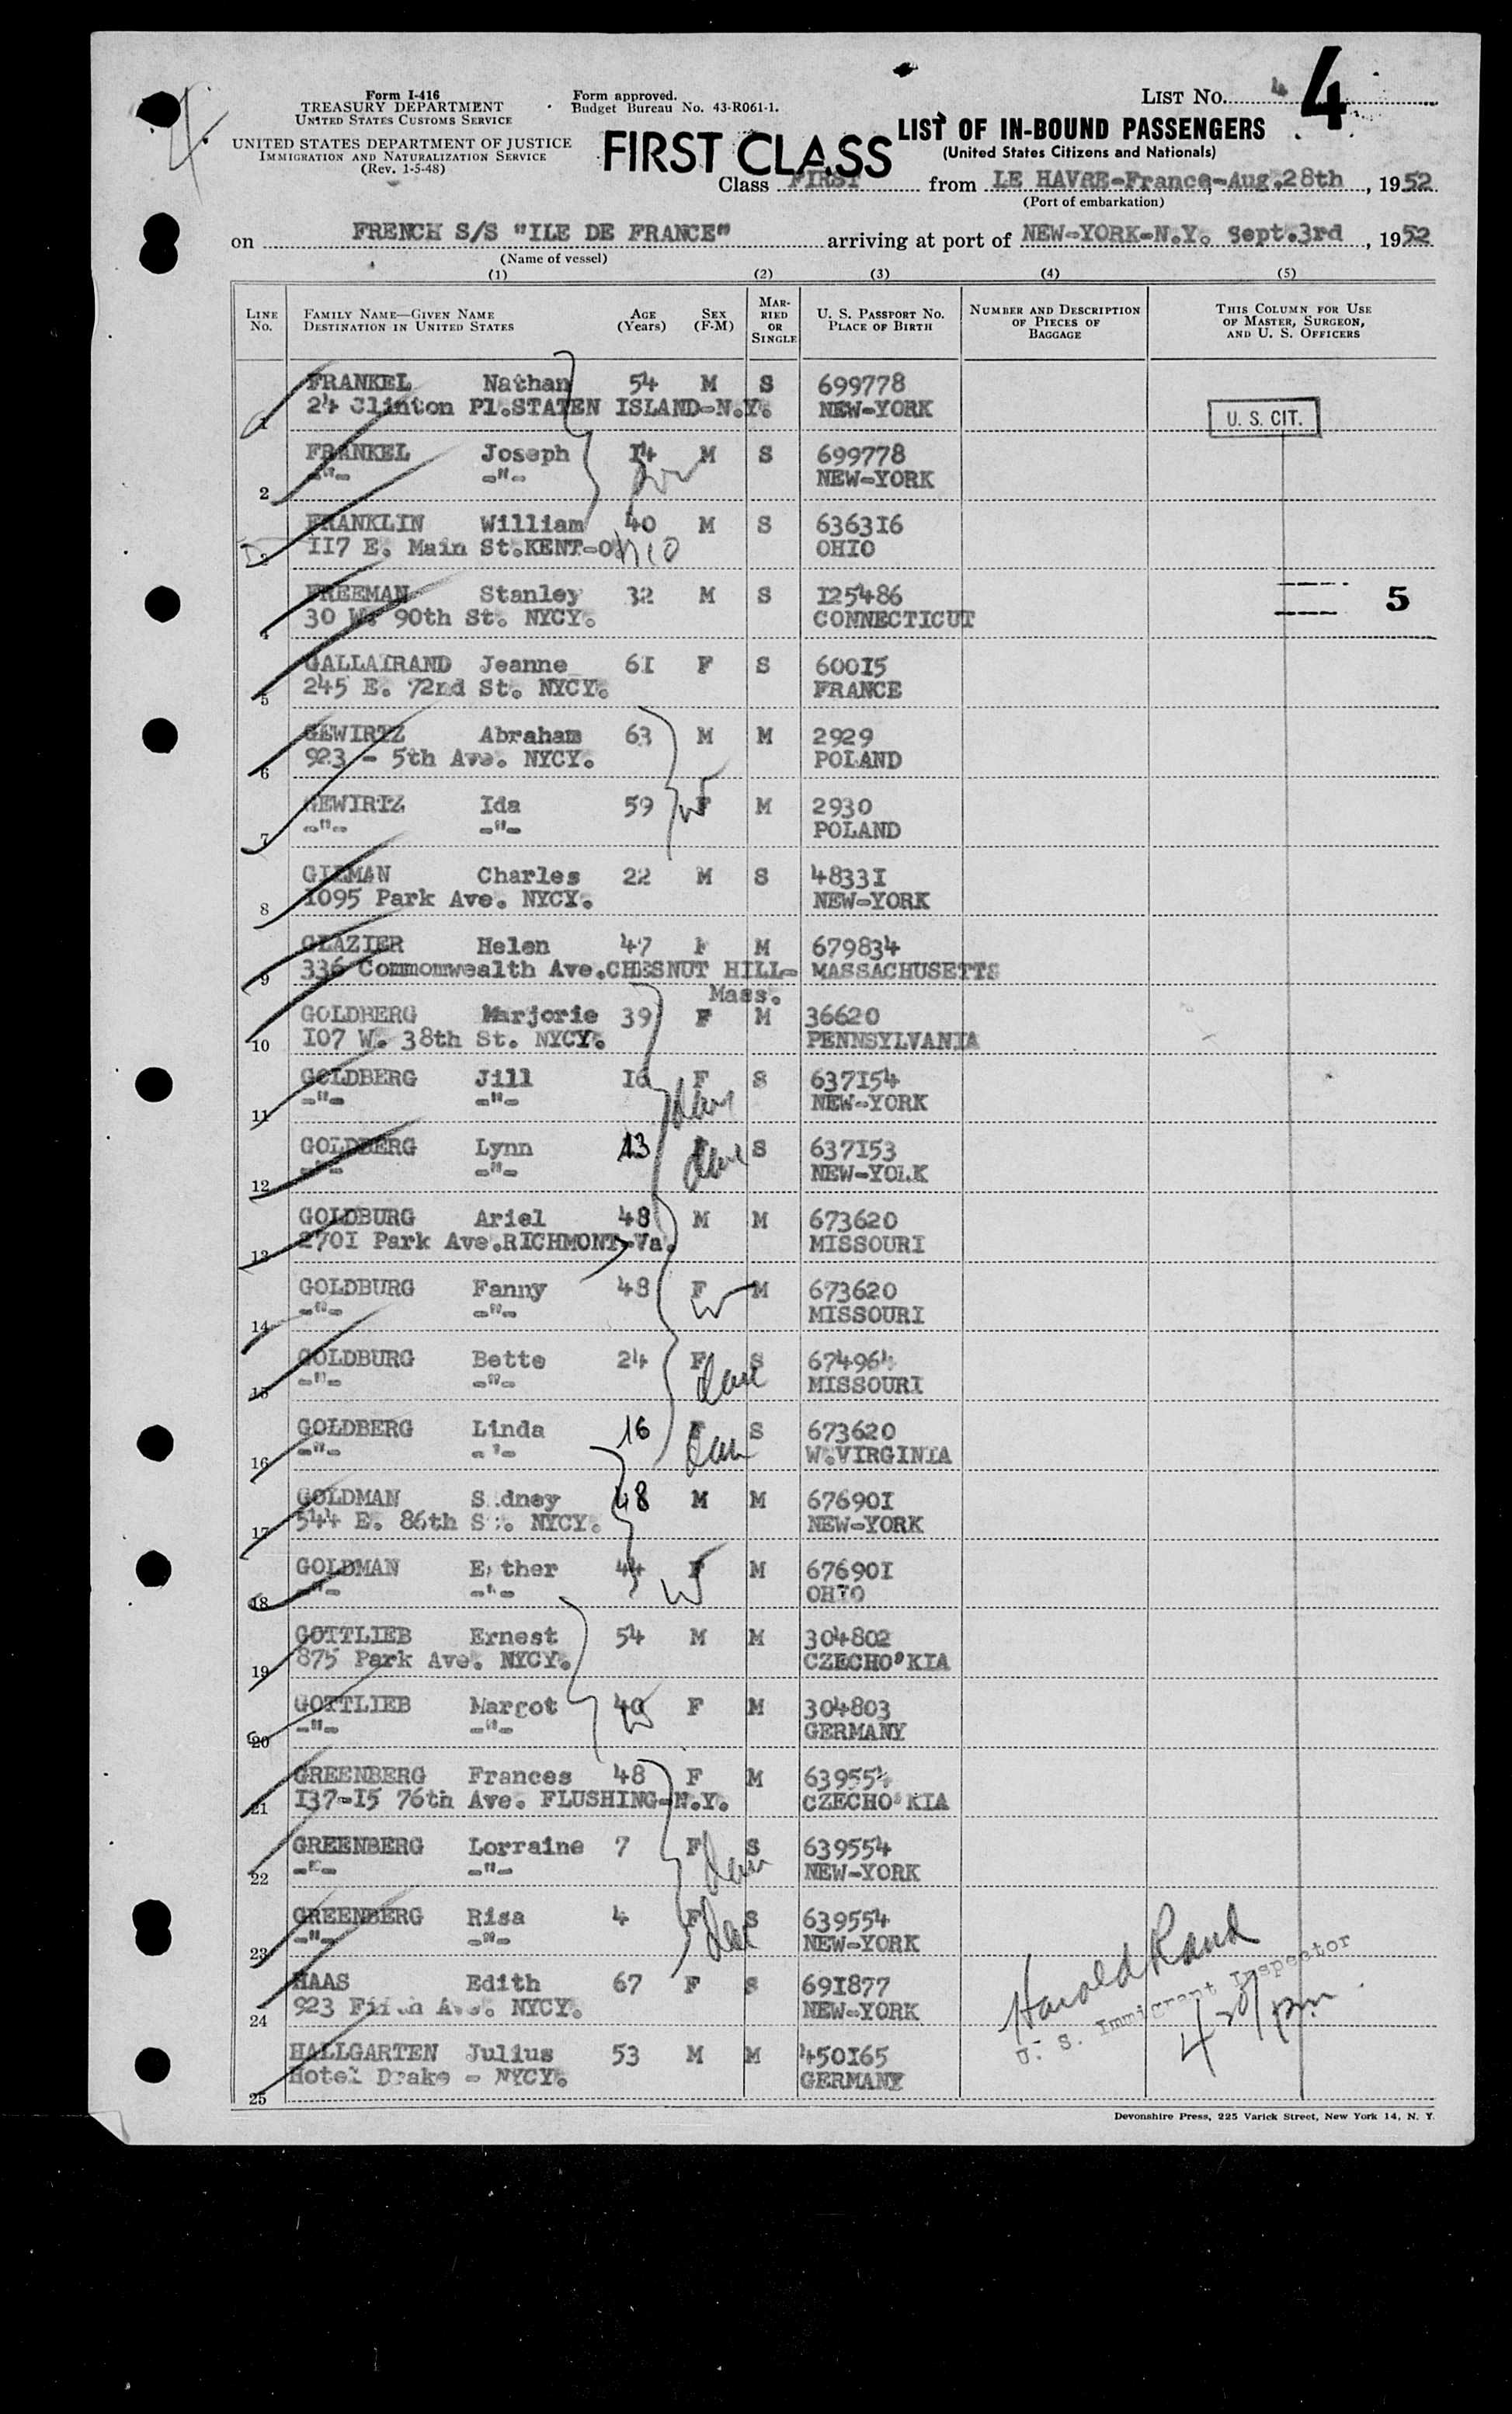 Form I-416
TREASURY DEPARTMENT
UNITED STATES CUSTOMS SERVICE
UNITED STATES DEPARTMENT OF JUSTICE
IMMIGRATION AND NATURALIZATION SERVICE
(Rev. 1-5-48)
Form approved.
Budget Bureau No. 43-R061-1.
LIST No. 4 4
FIRST CLASS
LIST OF IN-BOUND PASSENGERS
(United States Citizens and Nationals)
Class FIRST from LE HAVRE-France,-Aug.28th, 1952
(Port of embarkation)
on FRENCH S/S "ILE DE FRANCE" arriving at port of NEW-YORK-N.Y. Sept.3rd, 1952
(Name of vessel)
(1) (2) (3) (4) (5)
LINE No. FAMILY NAME—GIVEN NAME DESTINATION IN UNITED STATES AGE (Years) SEX (F-M) MARRIED OR SINGLE U. S. PASSPORT No. PLACE OF BIRTH NUMBER AND DESCRIPTION OF PIECES OF BAGGAGE THIS COLUMN FOR USE OF MASTER, SURGEON, AND U. S. OFFICERS
FRANKEL Nathan 54 M S 699778
1 24 Clinton Pl.STATEN ISLAND-N.Y. NEW-YORK
U. S. CIT.
FRANKEL Joseph 14 M S 699778
2 -"- -"- NEW-YORK
FRANKLIN William 40 M S 636316
3 117 E. Main St.KENT-Ohio OHIO
FREEMAN Stanley 32 M S 125486
4 30 W. 90th St. NYCY. CONNECTICUT
5
GALLAIRAND Jeanne 61 F S 60015
5 245 E. 72nd St. NYCY. FRANCE
GEWIRTZ Abraham 63 M M 2929
6 923 - 5th Ave. NYCY. POLAND
GEWIRTZ Ida 59 F M 2930
7 -"- -"- POLAND
GILMAN Charles 22 M S 48331
8 1095 Park Ave. NYCY. NEW-YORK
GLAZIER Helen 47 F M 679834
9 336 Commomwealth Ave.CHESNUT HILL- MASSACHUSETTS
Mass.
GOLDBERG Marjorie 39 F M 36620
10 107 W. 38th St. NYCY. PENNSYLVANIA
GOLDBERG Jill 16 F S 637154
11 -"- -"- NEW-YORK
GOLDBERG Lynn 13 S 637153
12 -"- -"- NEW-YORK
GOLDBURG Ariel 48 M M 673620
13 2701 Park Ave.RICHMONT-Va. MISSOURI
GOLDBURG Fanny 48 F M 673620
14 -"- -"- MISSOURI
GOLDBURG Bette 24 F S 674964
15 -"- -"- MISSOURI
GOLDBERG Linda 16 F S 673620
16 -"- -"- W.VIRGINIA
GOLDMAN Sidney 48 M M 676901
17 544 E. 86th St. NYCY. NEW-YORK
GOLDMAN Esther 44 F M 676901
18 -"- -"- OHIO
GOTTLIEB Ernest 54 M M 304802
19 875 Park Ave. NYCY. CZECHO'KIA
GOTTLIEB Margot 40 F M 304803
20 -"- -"- GERMANY
GREENBERG Frances 48 F M 639554
21 137-15 76th Ave. FLUSHING-N.Y. CZECHO'KIA
GREENBERG Lorraine 7 F S 639554
22 -"- -"- NEW-YORK
GREENBERG Risa 4 F S 639554
23 -"- -"- NEW-YORK
HAAS Edith 67 F S 691877
24 923 Fifth Ave. NYCY. NEW-YORK
HALLGARTEN Julius 53 M M 450165
25 Hotel Drake - NYCY. GERMANY
Harold Rand
U. S. Immigrant Inspector
430 pm
Devonshire Press, 225 Varick Street, New York 14, N. Y.